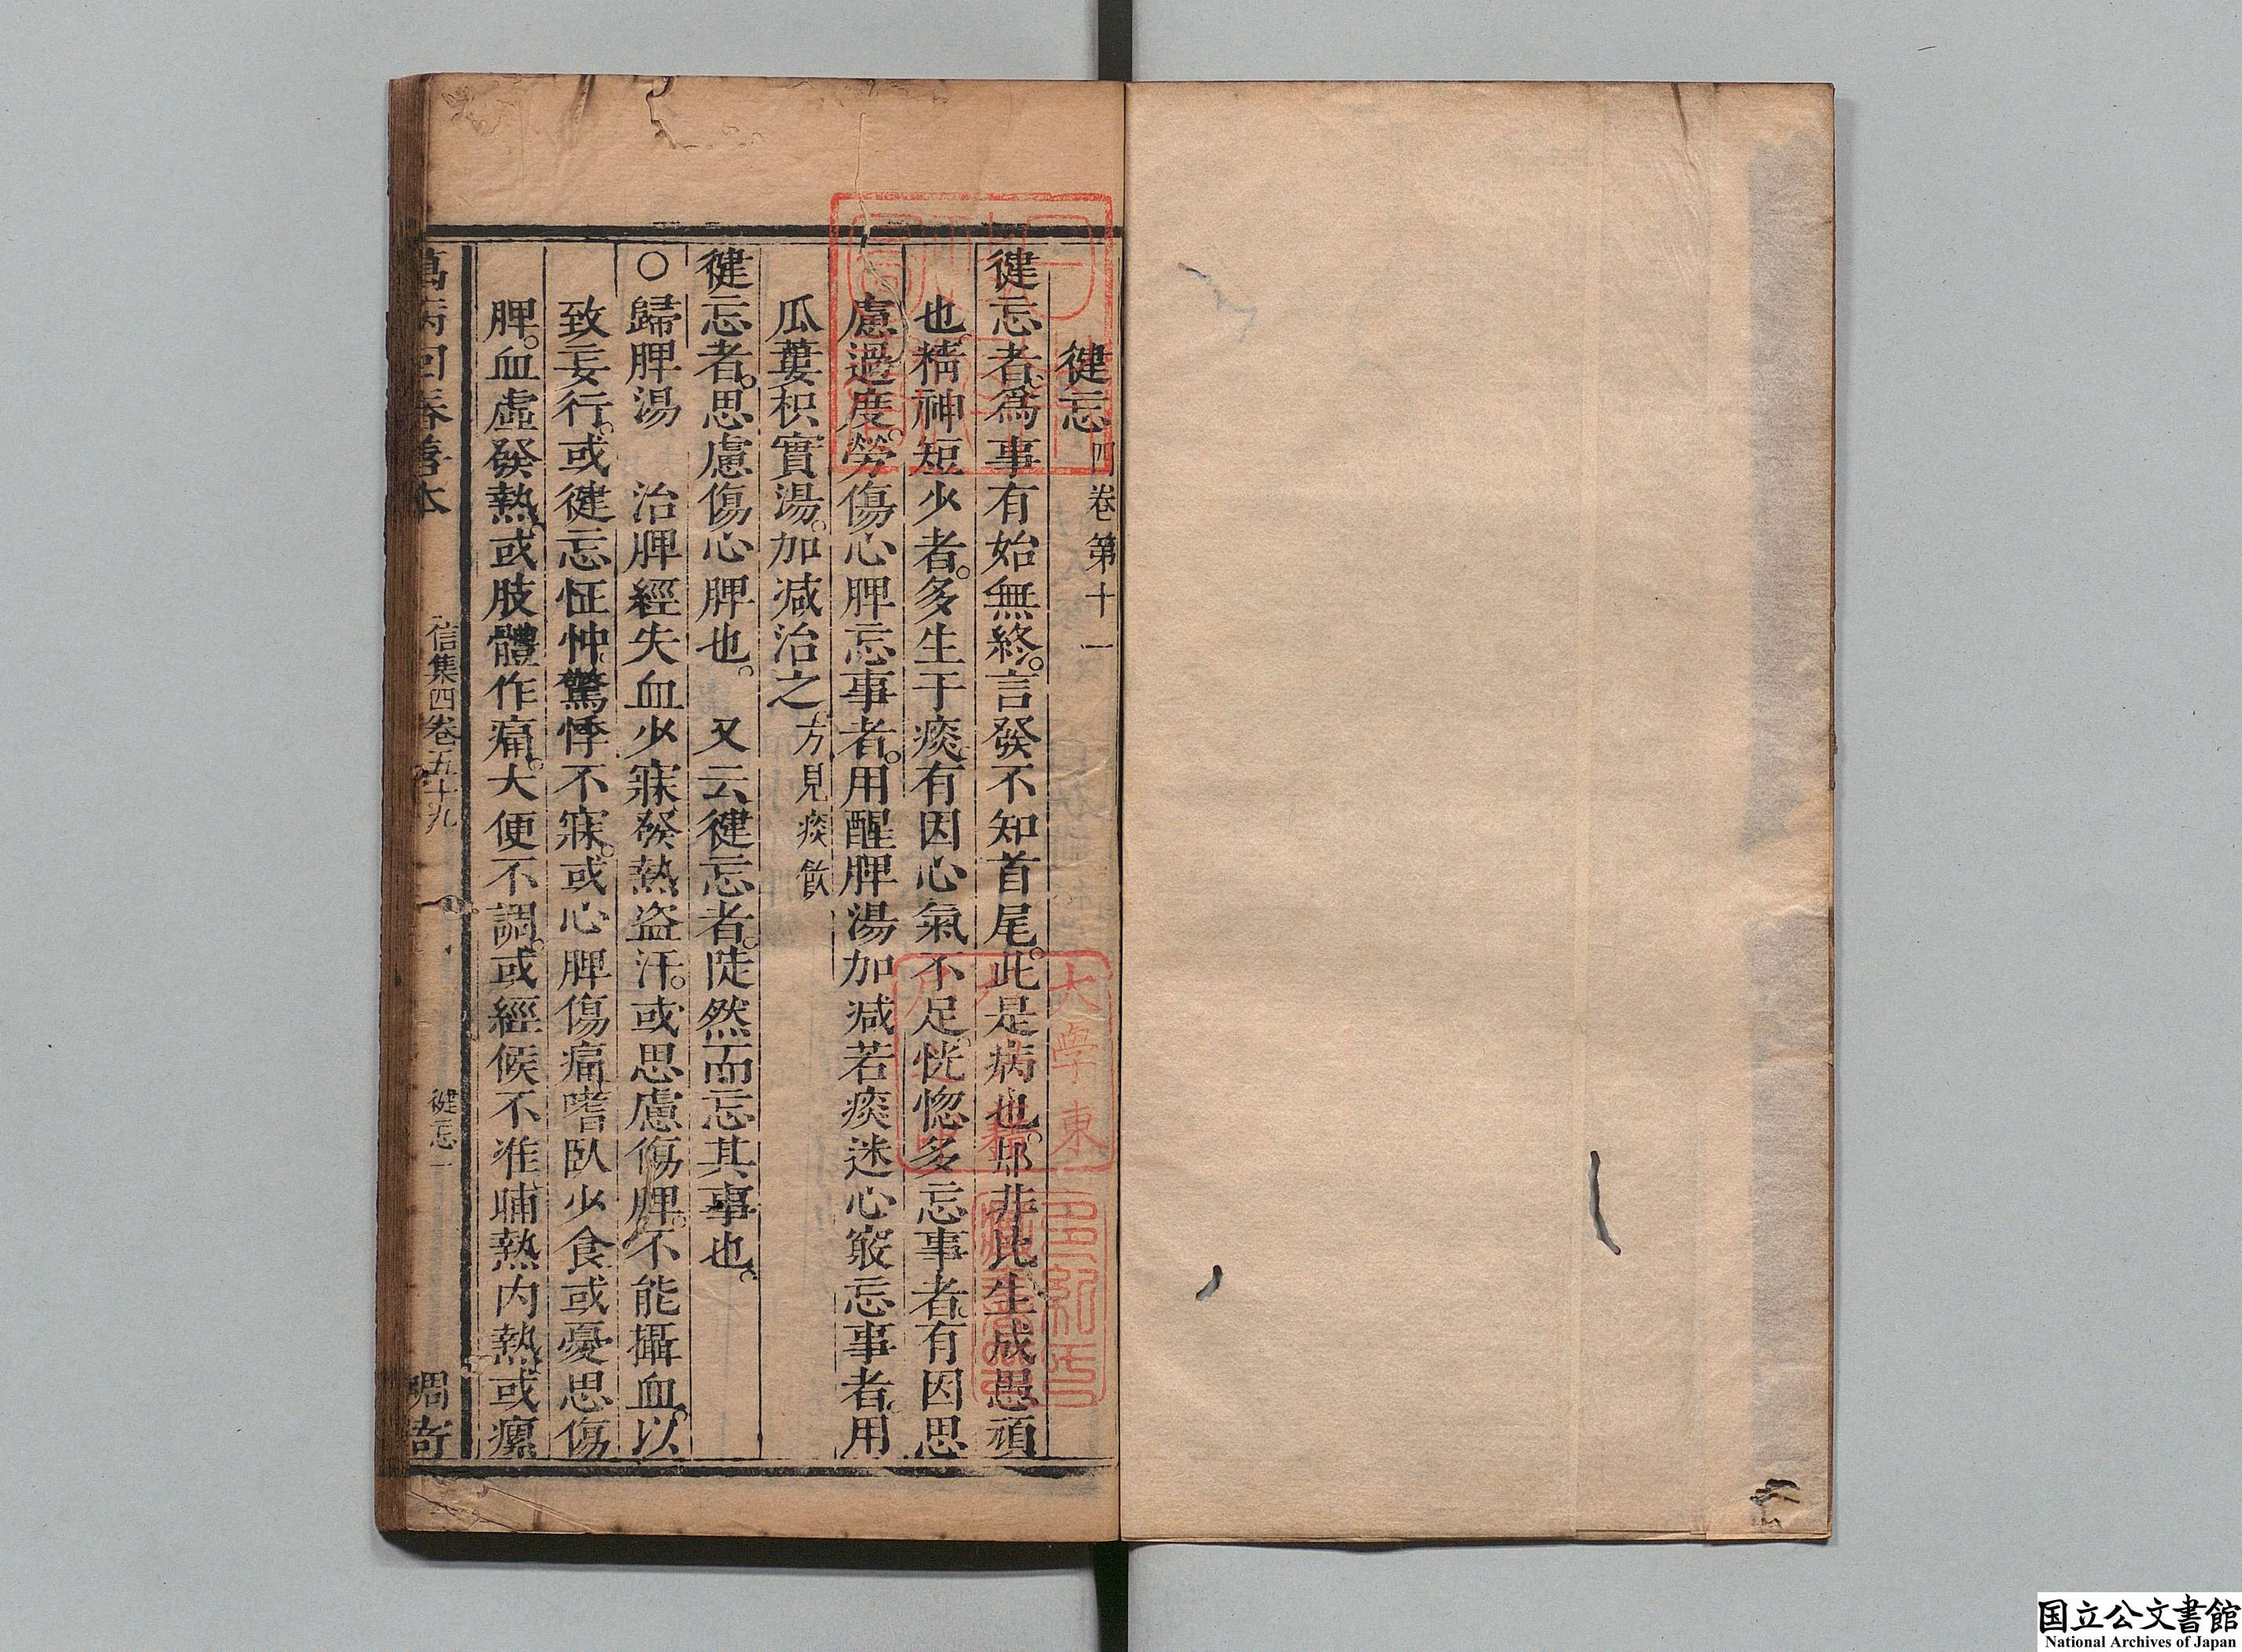 徤忘 四卷第十一
徤忘者。爲事有始無終。言發不知首尾。此是病也。非比生成愚頑
也。精神短少者。多生于痰。有因心氣不足。恍惚多忘事者。有因思
慮過度。勞傷心脾忘事者。用醒脾湯加减若痰迷心竅忘事者。用
瓜蔞枳實湯。加减治之。方見痰飲
徤忘者。思慮傷心脾也。 又云徤忘者。陡然而忘其事也。
〇歸脾湯 治脾經失血少寐發熱盗汗。或思慮傷脾。不能攝血。以
致妄行。或徤忘怔忡。驚悸不寐。或心脾傷痛嗜臥少食或憂思傷
脾。血虛發熱。或肢體作痛。大便不調。或經候不准晡熱内熱。或瘰
萬病回春善本 信集四卷五十九 徤忘一
大學東
国立公文書館
National Archives of Japan